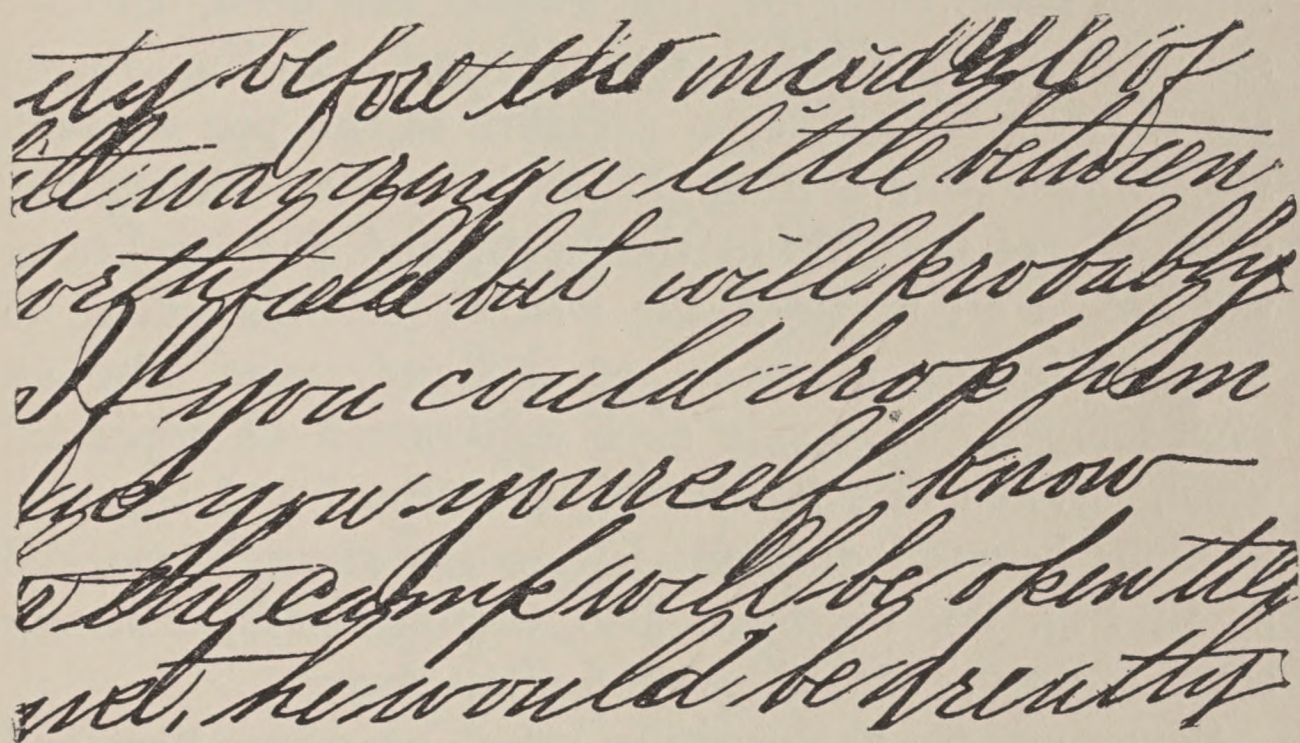 ity before the middle of
still varying a little between
orthfield but will probably
If you could drop him
you yourself know
the camp will be open the
he would be greatly